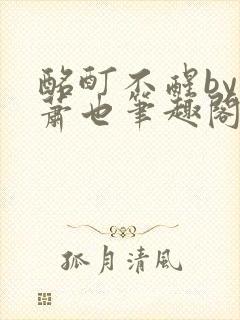 酩酊不醒by
萧也笔趣阁
孤月清風